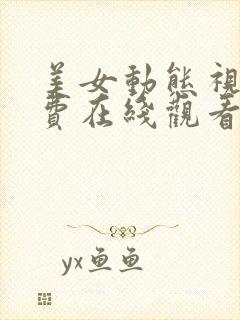 美女動態視
費在綫觀看
yx鱼鱼